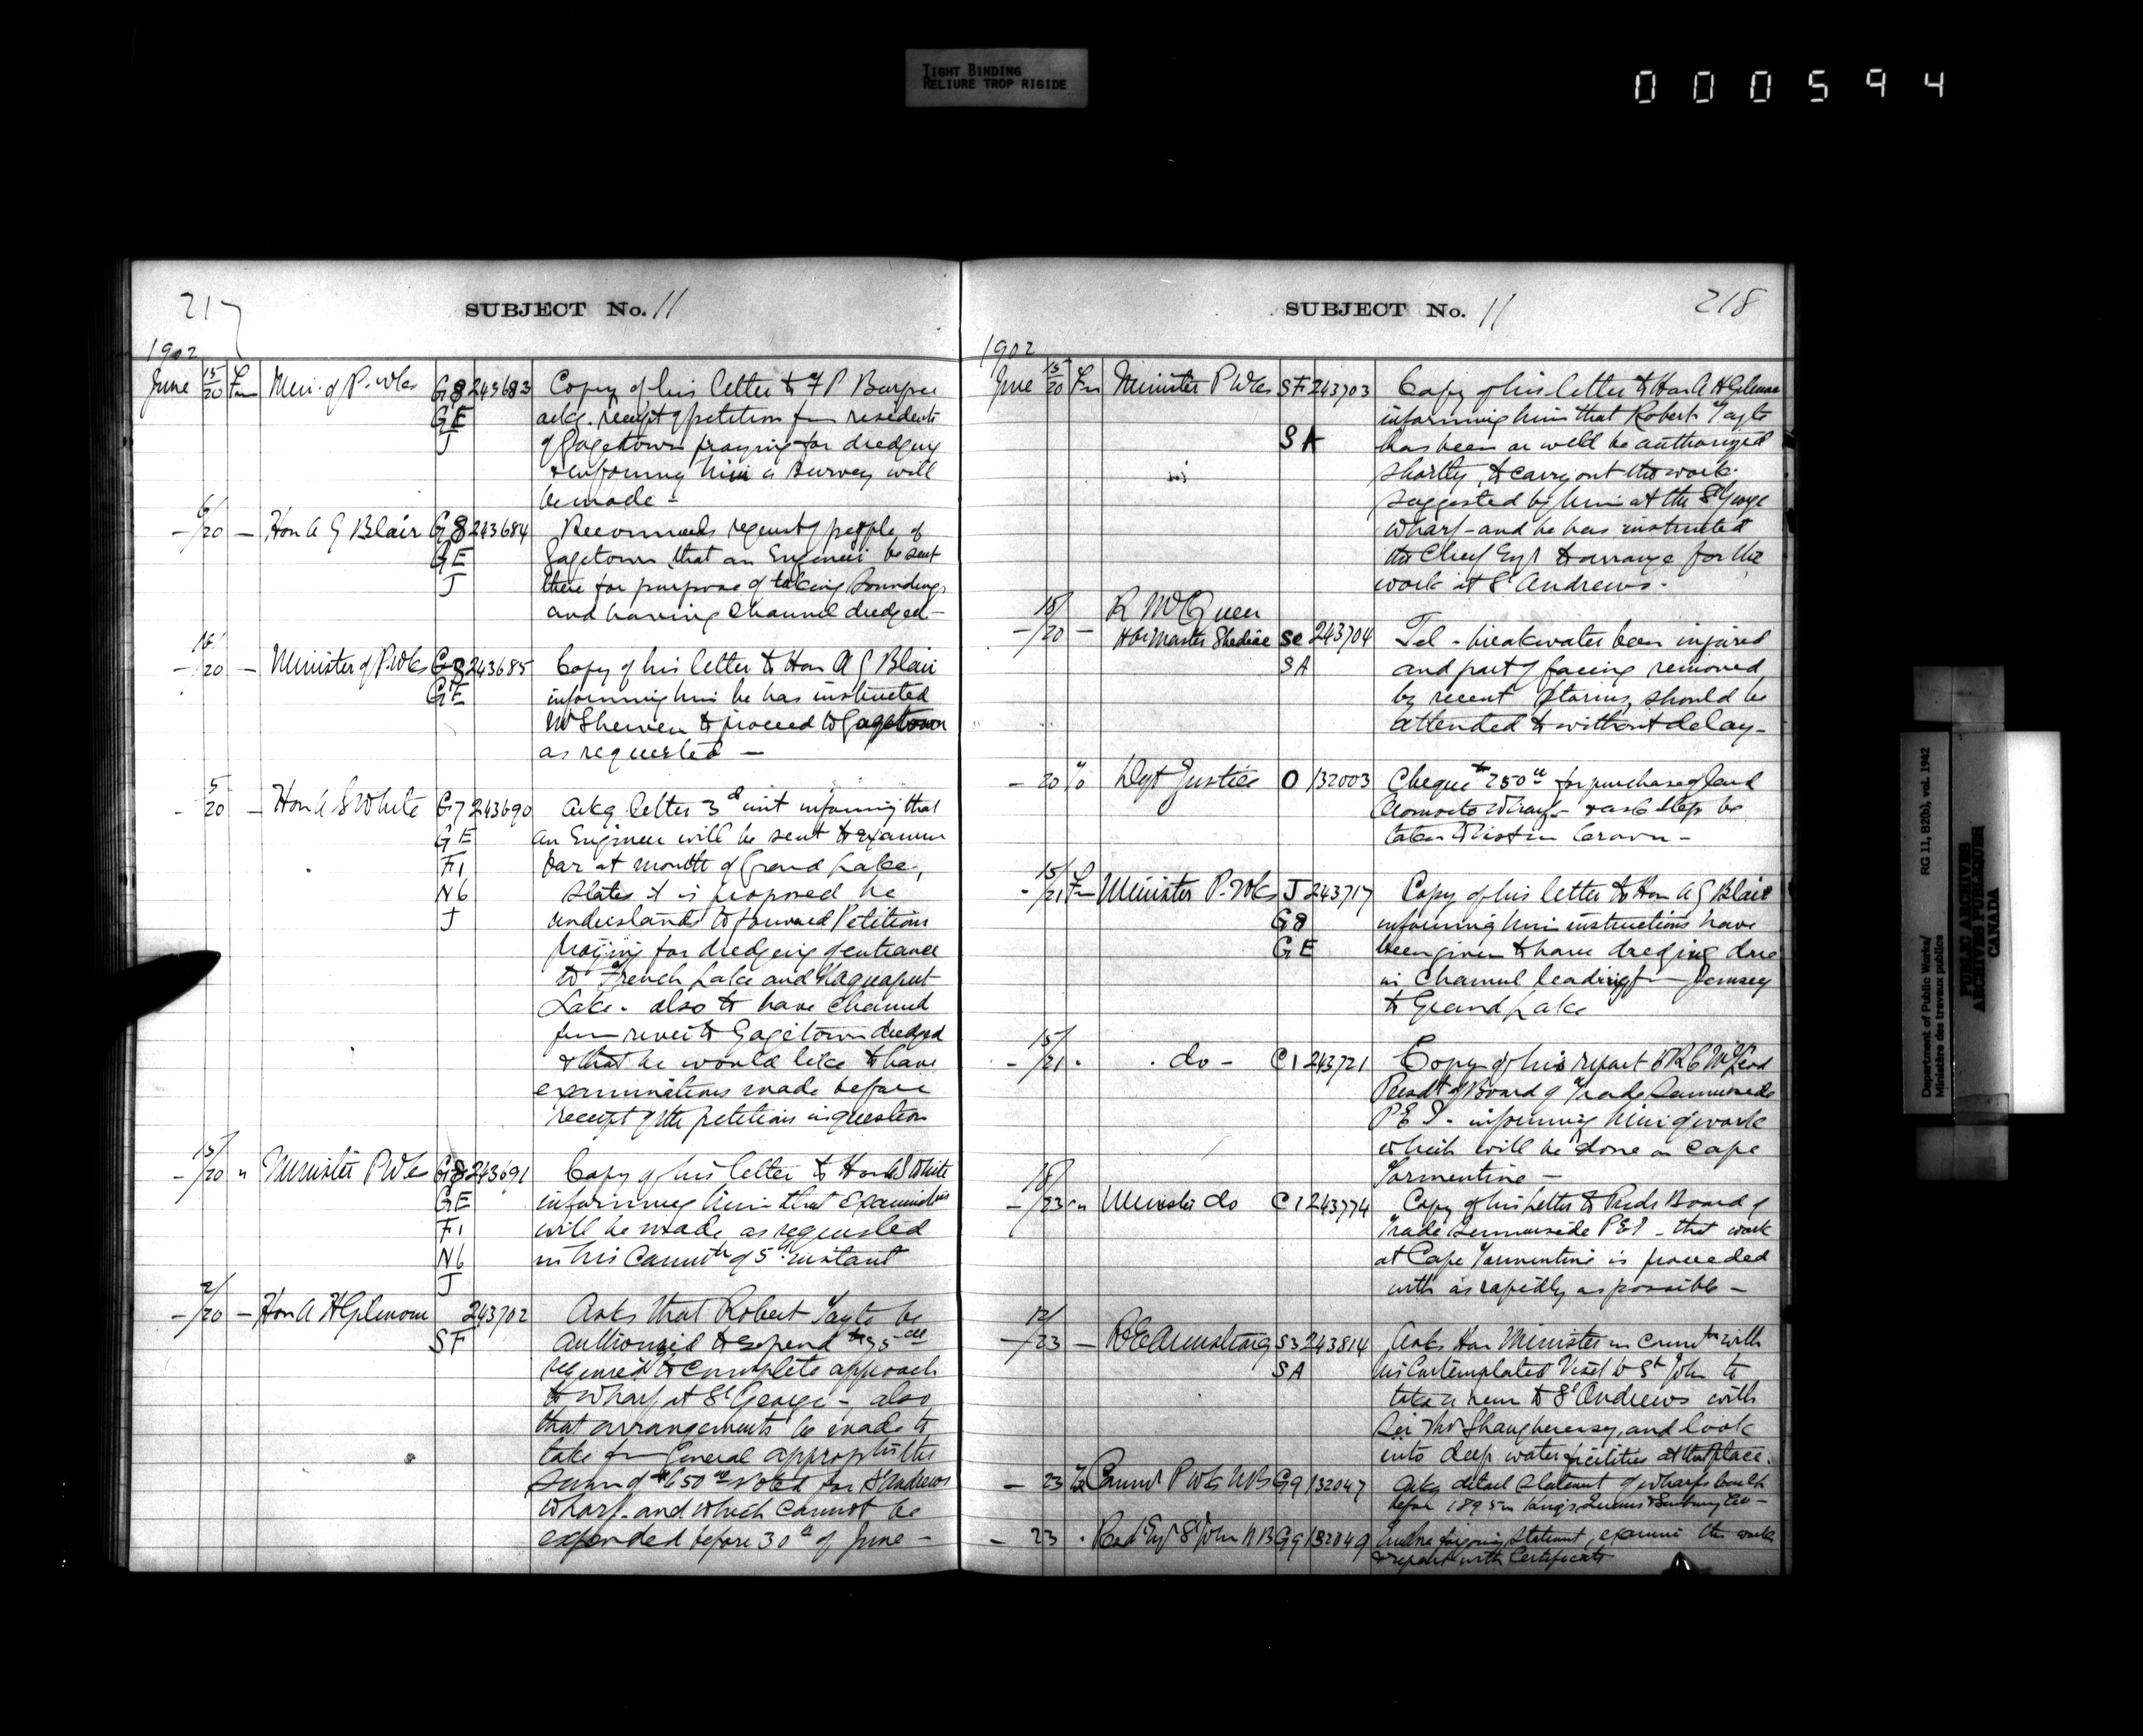 TIGHT BINDING
RELIURE TROP RIGIDE
000594
217
SUBJECT No. 11
1902
June 15/20 Fm Min. of P. Wks G8 243683 Copy of his letter to F P Burpee
GE ackg. receipt of petition fm residents
J of Gagetown praying for dredging
& informing him a survey will
be made -
- 6/20 - Hon A G Blair G8 243684 Recommends request of people of
GE Gagetown that an Engineer be sent
J there for purpose of taking soundings
and having Channel dredged -
- 16/20 - Minister of P. Wks G8 243685 Copy of his letter to Hon A G Blair
GE informing him he has instructed
Mr Shewen to proceed to Gagetown
as requested -
- 5/20 - Hon A S White G7 243690 Ackg letter 3d inst informing that
GE an Engineer will be sent to examine
F1 bar at mouth of Grand Lake,
N6 states it is proposed he
J understands to forward Petitions
praying for dredging of entrance
to French Lake and Maquapit
Lake - also to have Channel
fm river to Gagetown dredged
& that he would like to have
examinations made before
receipt of the petitions in question
- 15/20 " Minister P Wks G8 243691 Copy of his letter to Hon A S White
GE informing him that examinations
F1 will be made as requested
N6 in his Commth of 5th instant
J
- 2/20 - Hon A H Gilmour 243702 Asks that Robert Tayte be
SF authorized to expend $35.00
required to complete approach
to Wharf at St George - also
that arrangements be made to
take fm General appropts the
sum of $650.00 voted for St Andrews
Wharf and which cannot be
expended before 30th of June -
SUBJECT No. 11
218
1902
June 15/20 Fm Minister P Wks SF 243703 Copy of his letter to Hon A H Gilmour
informing him that Robert Tayte
SA has been or will be authorized
shortly, to carry out the work
suggested by him at the St George
Wharf - and he has instructed
the Chief Engr to arrange for the
work at St Andrews -
18/ R McQueen
- /20 - Hbr Master Shediac Se 243704 Tel - breakwater been injured
SA and part of facing removed
by recent storms, should be
attended to without delay -
- 20 To Dept Justice O 132003 Cheque $250.00 for purchase of land
Wharf - & ask steps be
taken to vest in Crown -
- 15/21 Fm Minister P. Wks J 243717 Copy of his letter to Hon A G Blair
G8 informing him instructions have
GE been given to have dredging done
in Channel leading fm Jemseg
to Grand Lake
- 15/21 - - do - C1 243721 Copy of his report to R C McLeod
Presdt of Board of Trade Summerside
P E I - informing him of work
which will be done in Cape
Tormentine -
- 18/23 " Minister do C1 243774 Copy of his letter to Preds Board of
Trade Summerside P E I - that work
at Cape Tormentine is proceeded
with as rapidly as possible -
- 12/23 - R E Armstrong S3 243814 Asks Hon Minister in connth with
SA his contemplated visit to St John to
take a run to St Andrews with
Sir Thos Shaughnessy, and look
into deep water facilities at that place.
- 23 To Commr P Wks NB G9 132047 Asks detail statement of wharfs built
before 1895 in Kings, Queens & Sunbury Cos -
- 23 . Resd Engr St John N B G9 132049 foregoing statement, examine the work
& report with Certificate
Department of Public Works/ RG 11, B20b), vol. 1942
Ministère des travaux publics
PUBLIC ARCHIVES
ARCHIVES PUBLIQUES
CANADA